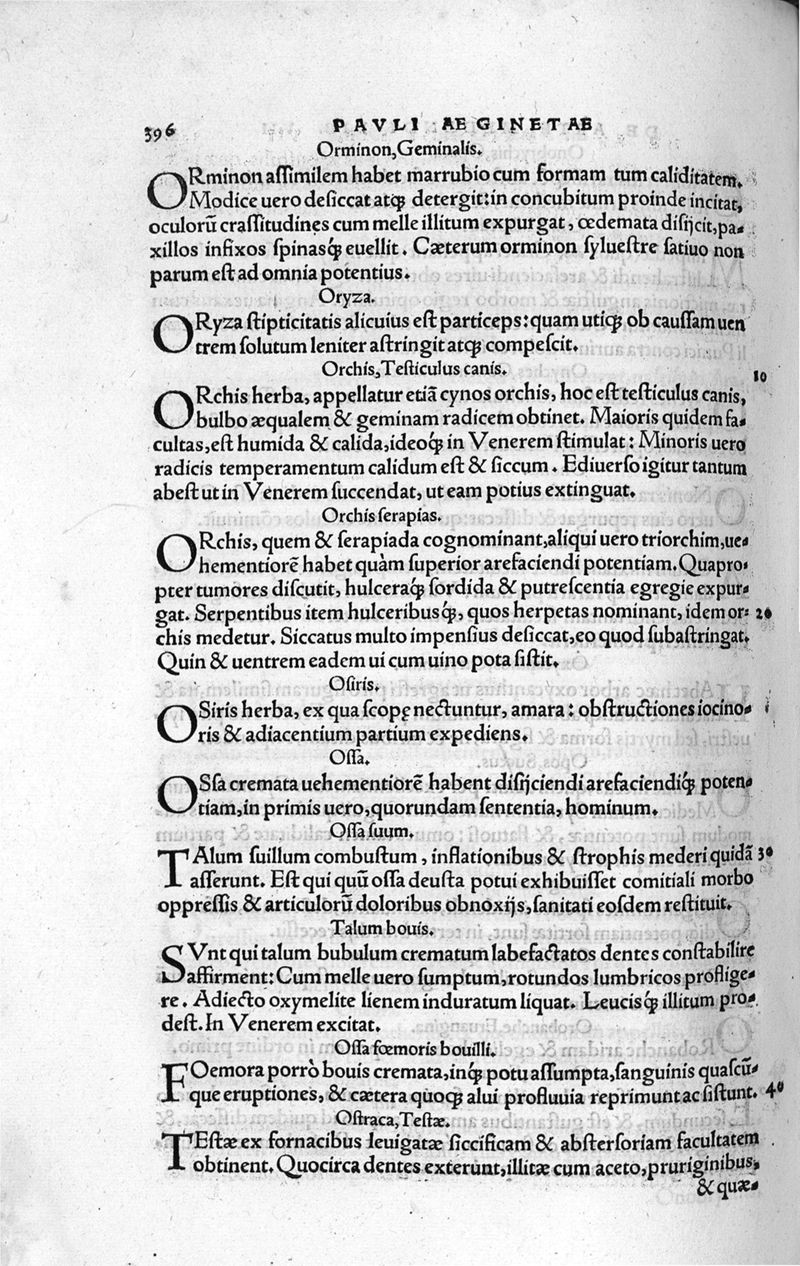 396
PAVLI AEGINETAE
Orminon, Geminalis.
ORminon aſſimilem habet marrubio cum formam tum caliditatem.
Modice uero deſiccat atq́; detergit: in concubitum proinde incitat,
oculorũ craſſitudines cum melle illitum expurgat, œdemata diſijcit, pa-
xillos infixos ſpinasq́; euellit. Cæterum orminon ſylueſtre ſatiuo non
parum eſt ad omnia potentius.
Oryza.
ORyza ſtipticitatis alicuius eſt particeps: quam utiq́; ob cauſſam uen
trem ſolutum leniter aſtringit atq́; compeſcit.
Orchis, Teſticulus canis.
10
ORchis herba, appellatur etiã cynos orchis, hoc eſt teſticulus canis,
bulbo æqualem & geminam radicem obtinet. Maioris quidem fa-
cultas, eſt humida & calida, ideoq́; in Venerem ſtimulat: Minoris uero
radicis temperamentum calidum eſt & ſiccum. Ediuerſo igitur tantum
abeſt ut in Venerem ſuccendat, ut eam potius extinguat.
Orchis ſerapias.
ORchis, quem & ſerapiada cognominant, aliqui uero triorchim, ue-
hementiorẽ habet quàm ſuperior arefaciendi potentiam. Quapro-
pter tumores diſcutit, hulceraq́; ſordida & putreſcentia egregie expur-
gat. Serpentibus item hulceribusq́;, quos herpetas nominant, idem or- 20
chis medetur. Siccatus multo impenſius deſiccat, eo quod ſubaſtringat.
Quin & uentrem eadem ui cum uino pota ſiſtit.
Oſiris.
OSiris herba, ex qua ſcopę nectuntur, amara: obſtructiones iocino-
ris & adiacentium partium expediens.
Oſſa.
OSſa cremata uehementiorẽ habent diſijciendi arefaciendiq́; poten-
tiam, in primis uero, quorundam ſententia, hominum.
Oſſa ſuum.
TAlum ſuillum combuſtum, inflationibus & ſtrophis mederi quidã 30
aſſerunt. Eſt qui quũ oſſa deuſta potui exhibuiſſet comitiali morbo
oppreſſis & articulorũ doloribus obnoxijs, ſanitati eoſdem reſtituit.
Talum bouis.
SVnt qui talum bubulum crematum labefactatos dentes conſtabilire
affirment: Cum melle uero ſumptum, rotundos lumbricos proflige-
re. Adiecto oxymelite lienem induratum liquat. Leucisq́; illitum pro-
deſt. In Venerem excitat.
Oſſa fœmoris bouilli.
FOemora porrò bouis cremata, inq́; potu aſſumpta, ſanguinis quaſcũ-
que eruptiones, & cætera quoq́; alui profluuia reprimunt ac ſiſtunt. 40
Oſtraca, Teſtæ.
TEſtæ ex fornacibus leuigatæ ſiccificam & abſterſoriam facultatem
obtinent. Quocirca dentes exterunt, illitæ cum aceto, pruriginibus,
& quæ-